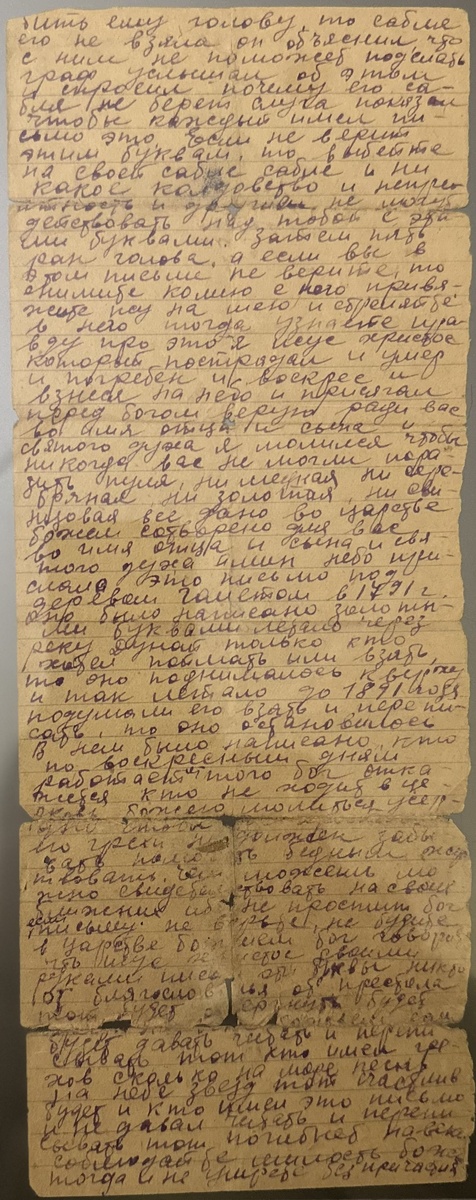 бить ему голову, то сабля
его не взяла он объяснил, что
с ним не поможеб подслать
граф услышал об этом
и спросил почему его са-
бля не берет слуга показал
чтобы каждый имел пи-
сьмо это, если не верит
этим буквам, то выбейте
на своей сабле сабле и ни
какое колдовство и непри-
ятность и другий не могут
действовать над тобой с эти
ми буквами. Затем пять
ран голова, а если вы в
этом письме не верите, то
снимите копию с него привя-
жите псу на шею и стреляйте
в него тогда узнаете пра-
вду про это я исус христос
который пострадал и умер
и погребен и воскрес и
взнеся на небо и присягал
перед богом верую ради вас
во имя отца и сына и
святого духа я молился чтобы
никогда вас не могли пора
зить пуля, ни медная ни сере-
бряная ни золотая, ни сви
нцовая все дано во царстве
божем сотворено для вас
во имя отца и сына и свя-
того духа аминь небо при-
слало это письмо под
деревом гаметом в 1791 г.
оно было написано золоты-
ми буквами летало через
реку дунай только кто
хотел поймать или взять,
то оно поднималось к верху
и так летало до 1891 года
подумали его взять и перепи-
сать, то оно остановилось
В нем было написано, кто
по воскресным дням
работает того бог отка
жется кто не ходит в це-
божего молиться усер-
дно чтобы
его грехи должен забы
вать бедным жер
твовать. можешь мо
жно свидетельствовать на своих
ближних не простит бог
если письму не верьте, не будете
в царстве божием бог говорил
что исус христос своими
руками имел эти буквы никто
от благословья от престола
тот будет
будет давать читать и перепи
сывать тот кто имел гре-
хов сколько на море песка
на небе звезд тот счастлив
будет и кто имел это письмо
и не давал читать и перепи
сывать тот погибнет навеки
соблюдайте милость божью
тогда и не умрете без причастия